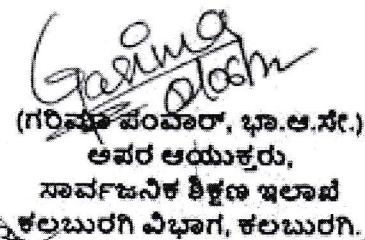 Garima
(ಗರಿಮಾ ಪಂವಾರ್, ಭಾ.ಆ.ಸೇ.)
ಅಪರ ಆಯುಕ್ತರು,
ಸಾರ್ವಜನಿಕ ಶಿಕ್ಷಣ ಇಲಾಖೆ
ಕಲಬುರಗಿ ವಿಭಾಗ, ಕಲಬುರಗಿ.